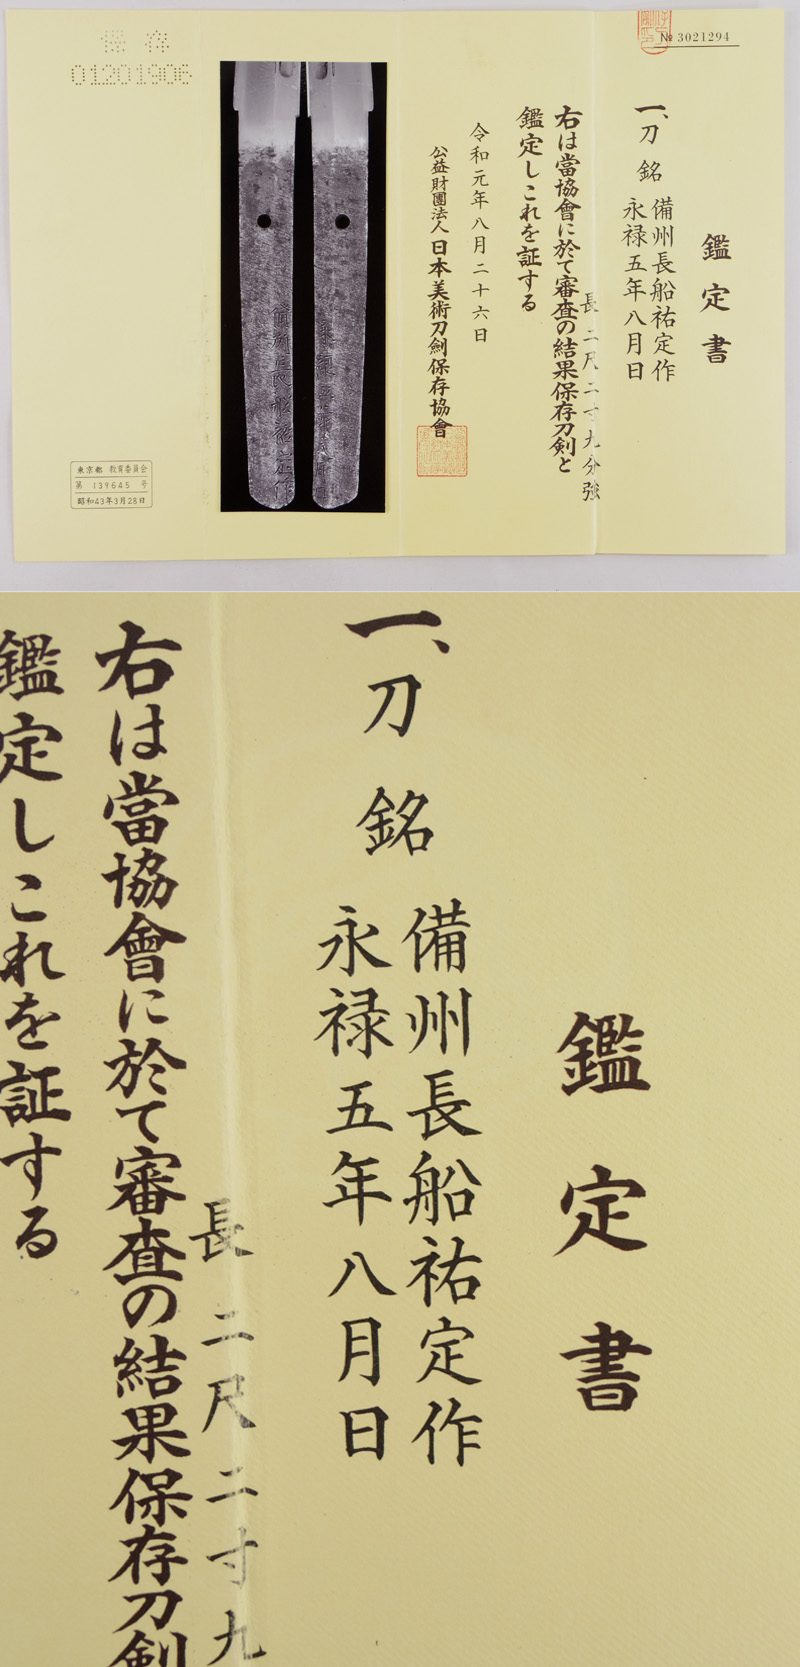 № 3021294
鑑定書
一、刀 銘 備州長船祐定作
永禄五年八月日
長 二尺二寸九分強
右は當協會に於て審査の結果保存刀剣と
鑑定しこれを証する
令和元年八月二十六日
公益財團法人日本美術刀劍保存協會
保存
01201906
東京都 教育委員会
第 139645 号
昭和43年3月28日
鑑定書
一、刀 銘 備州長船祐定作
永禄五年八月日
長 二尺二寸九
右は當協會に於て審査の結果保存刀剣
鑑定しこれを証する